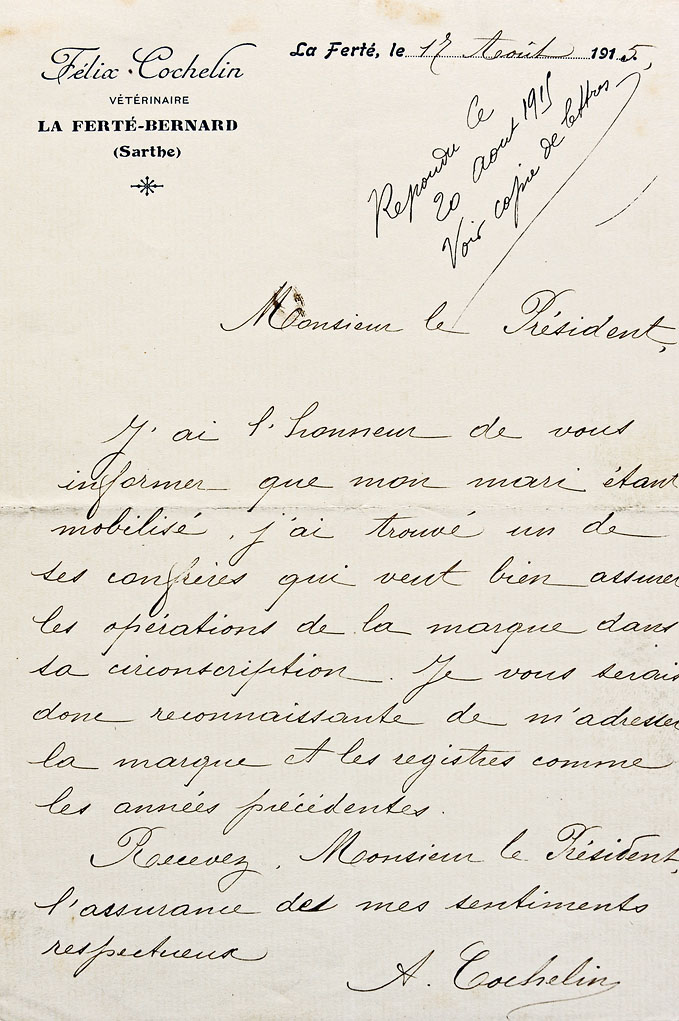 Félix Cochelin
VÉTÉRINAIRE
LA FERTÉ-BERNARD
(Sarthe)
La Ferté, le 17 Août 1915,
Repondu le
20 aout 1915
Voir copie de lettres
Monsieur le Président,
J'ai l'honneur de vous
informer que mon mari étant
mobilisé, j'ai trouvé un de
ses confrères qui veut bien assurer
les opérations de la marque dans
sa circonscription. Je vous serais
donc reconnaissante de m'adresser
la marque et les registres comme
les années précédentes.
Recevez, Monsieur le Président,
l'assurance des mes sentiments
respectueux
A. Cochelin